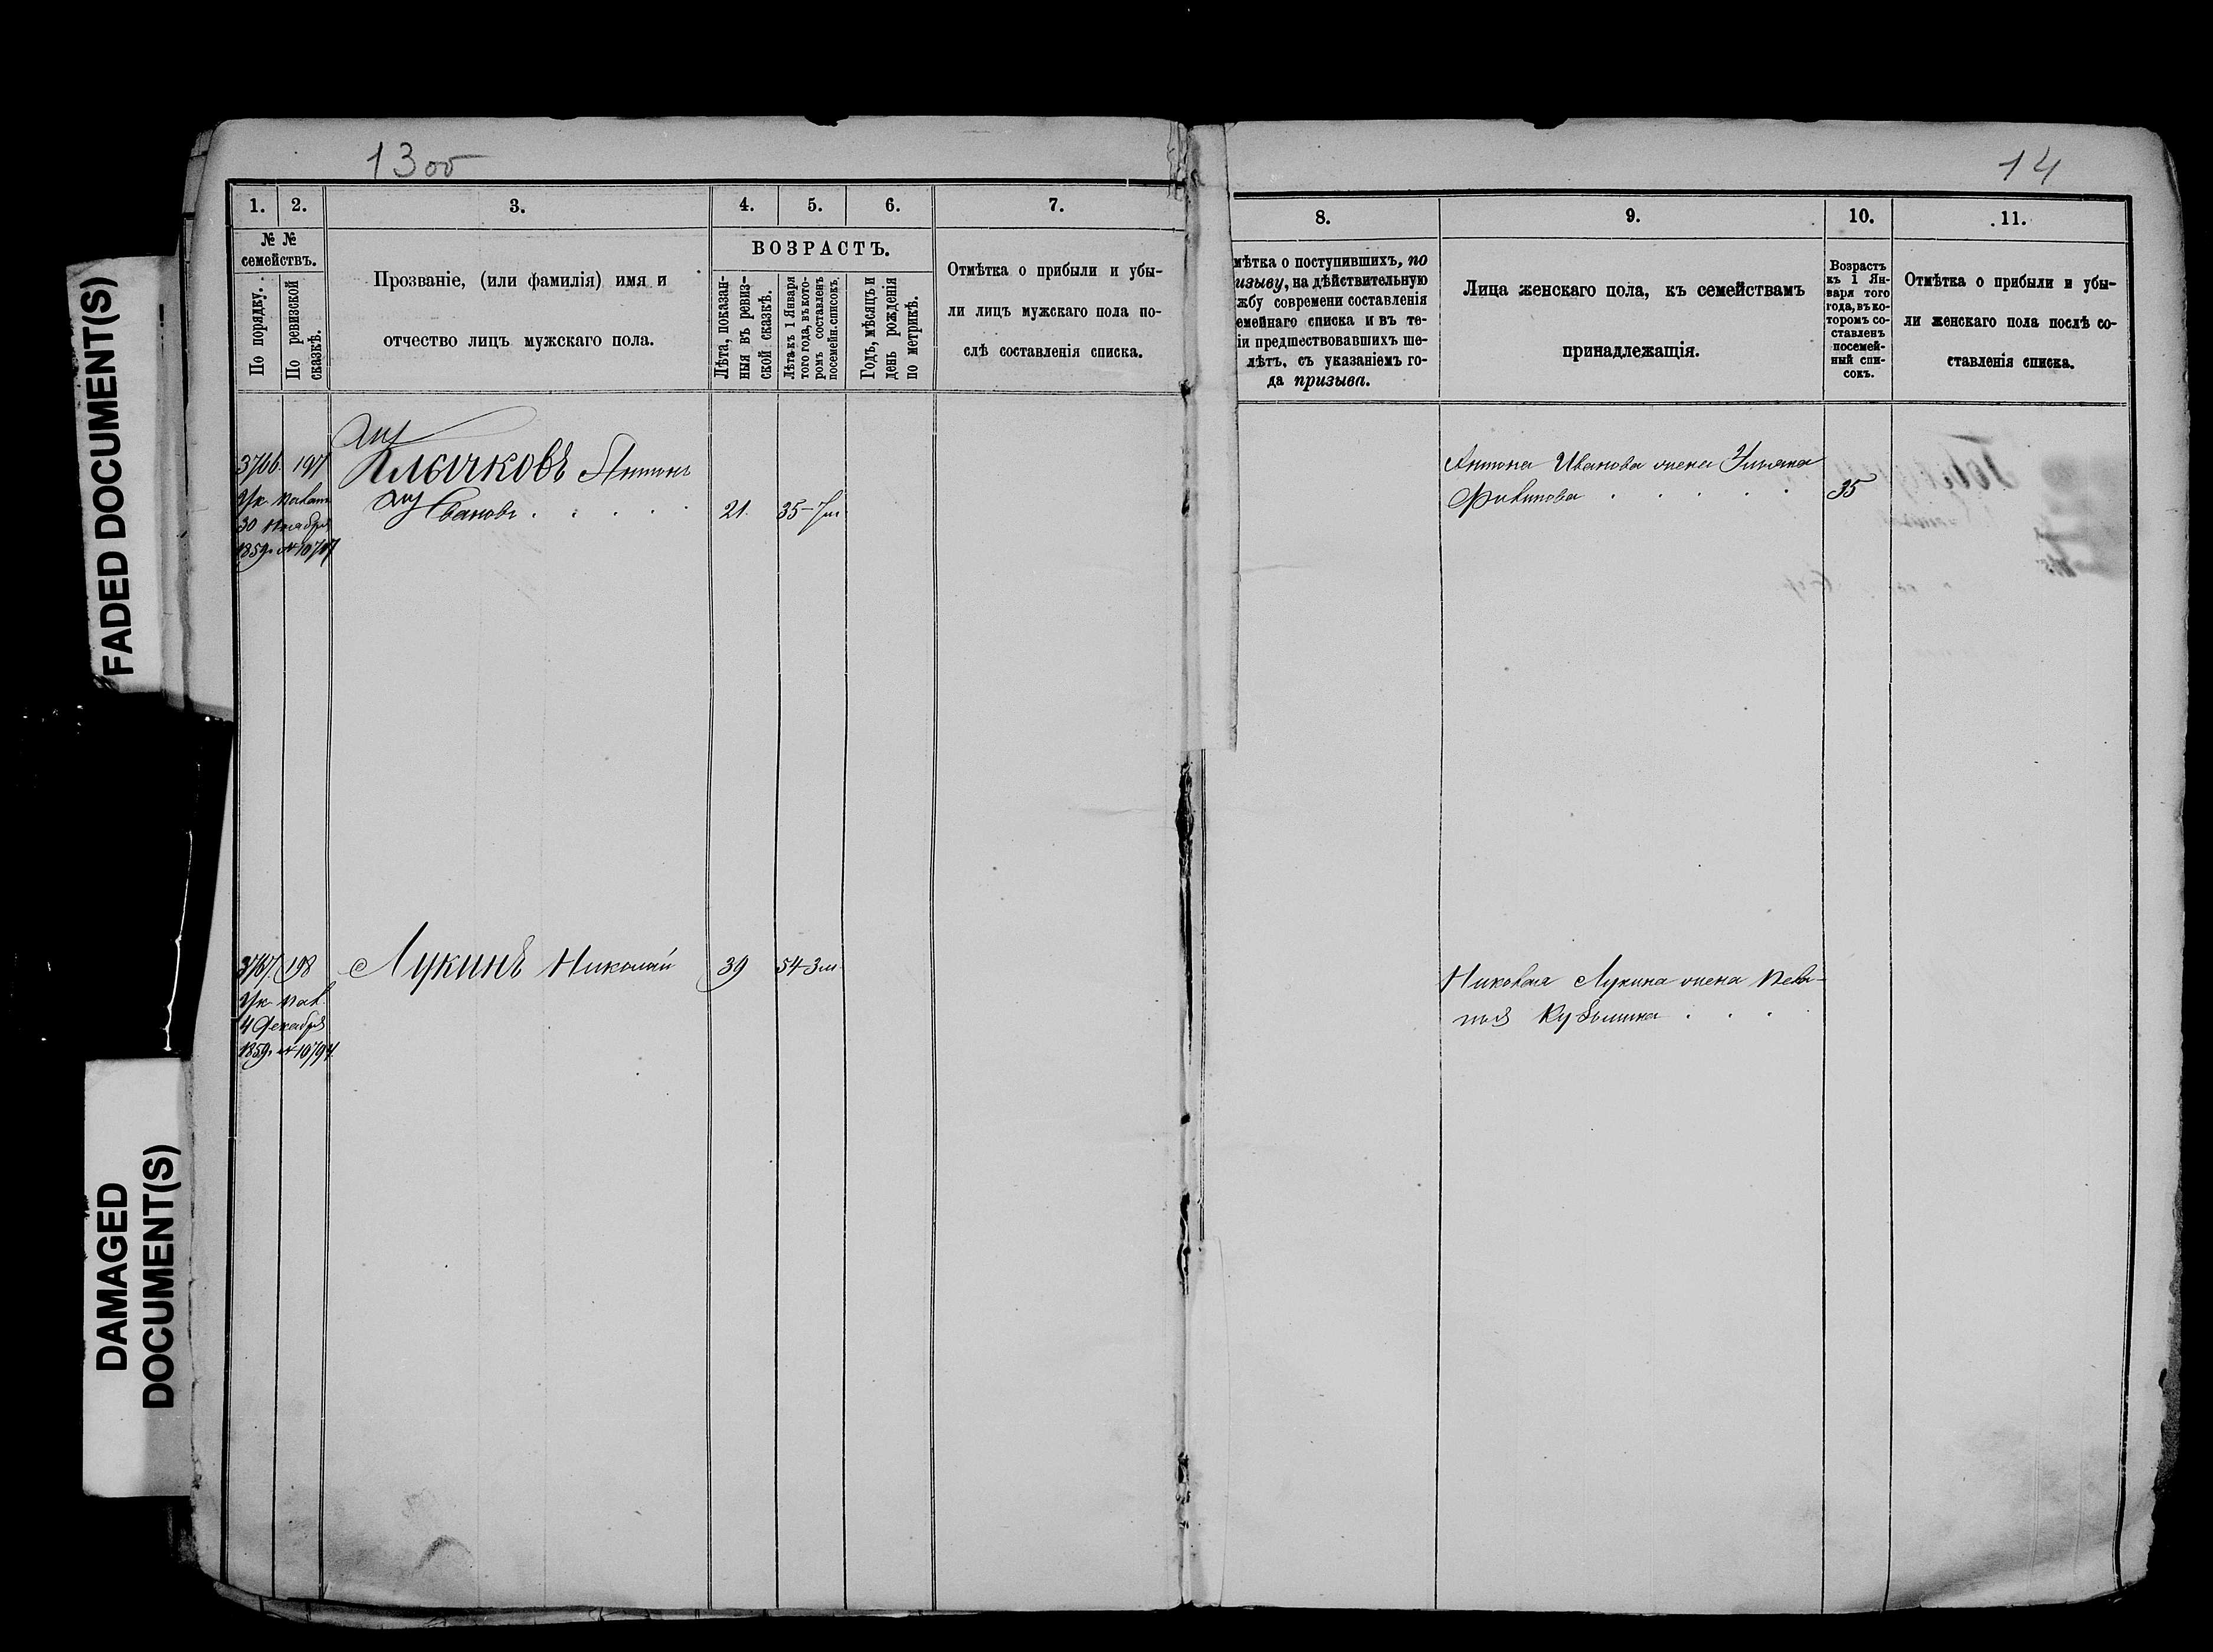 FADED DOCUMENT(S)
DAMAGED
DOCUMENT(S)
13об
1.
2.
3.
4.
5.
6.
7.
№ №
семействъ.
По порядку.
По ревизской
сказкѣ.
Прозваніе, (или фамилія) имя и
отчество лицъ мужскаго пола.
ВОЗРАСТЪ.
Лѣта, показан-
ныя въ ревиз-
ской сказкѣ.
Лѣта къ 1 Января
того года, въ кото-
ромъ составленъ
посемейн. списокъ.
Годъ, мѣсяцъ и
день рожденія
по метрикѣ.
Отмѣтка о прибыли и убы-
ли лицъ мужскаго пола по-
слѣ составленія списка.
3766. 197
Клычковъ Антонъ
Ивановъ
21.
35-7м
Ук. Палат
30 Ноября
1859г. №
3767. 198
Лукинъ Николай
39
54-3м
Ук. Пал.
4 Декабря
1859г. № 10794
14
8.
9.
10.
11.
мѣтка о поступившихъ, по
изыву, на дѣйствительную
жбу современи составленія
емейнаго списка и въ те-
іи предшествовавшихъ ше-
лѣтъ, съ указаніемъ го-
да призыва.
Лица женскаго пола, къ семействамъ
принадлежащія.
Возрастъ
къ 1 Ян-
варя того
года, въ ко-
торомъ со-
ставленъ
посемей-
ный спи-
сокъ.
Отмѣтка о прибыли и убы-
ли женскаго пола послѣ со-
ставленія списка.
Антона Иванова жена Ульяна
Филипова
35
Николая Лукина жена Пела-
гия